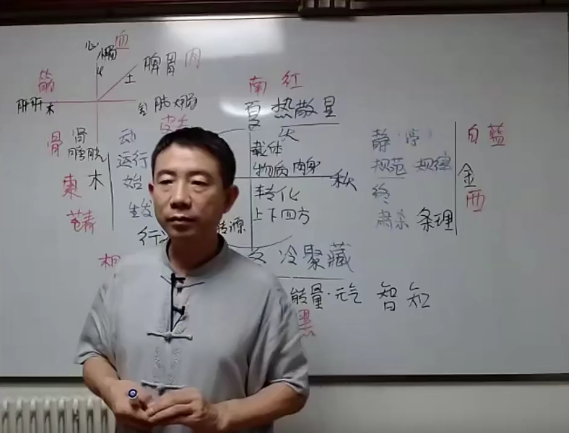 心 小肠 血
火
脾胃 肉
筋 土
肝胆 木 金 肺大肠
南 红
夏 热散星
骨 肾 动 火 静 停 白 蓝
膀胱 运行 载体 规范 规律
木 始 物质 肉身 秋 金
东 生发 转化 终 西
上下四方 肃杀 条理
行 转源
冷聚藏
能量·元气 智知
黑